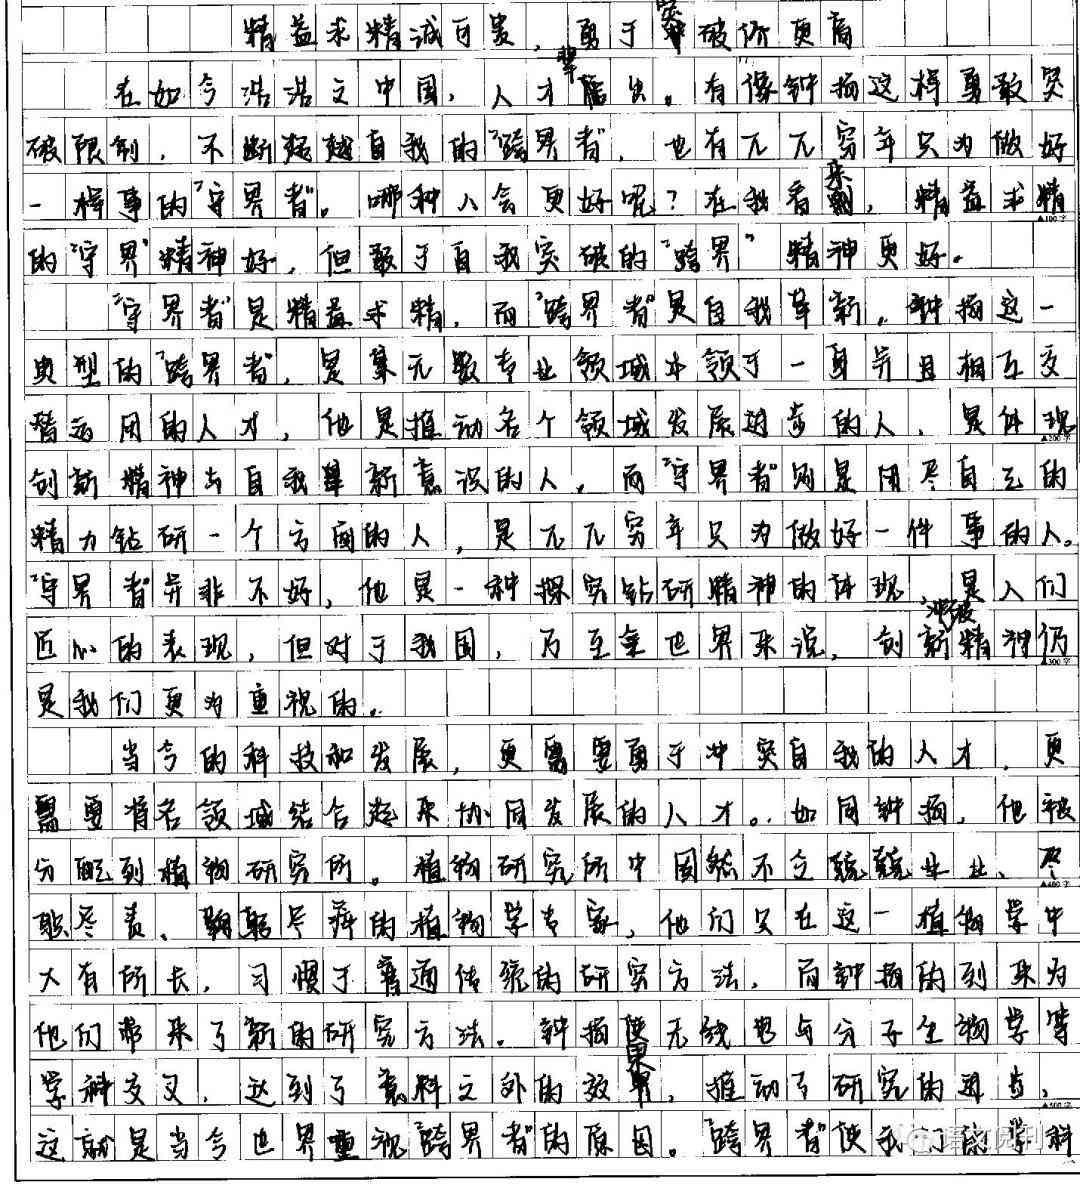 精益求精诚可贵，勇于突破价更高
在如今浩浩之中国，人才辈出。有像钟扬这样勇敢突
破限制，不断超越自我的“跨界者”，也有兀兀穷年只为做好
一样事的“守界者”。哪种人会更好呢？在我看来，精益求精
▲100字
的“守界”精神好，但敢于自我突破的“跨界”精神更好。
“守界者”是精益求精，而“跨界者”是自我革新。钟扬这一
典型的“跨界者”，是集无数专业领域本领于一身并且相互交
替运用的人才，他是推动各个领域发展进步的人，是体现
▲200字
创新精神与自我革新意识的人，而“守界者”则是用尽自己的
精力钻研一个方面的人，是兀兀穷年只为做好一件事的人。
“守界者”并非不好，他是一种探究钻研精神的体现，是人们
匠心的表现，但对于我国，乃至全世界来说，创新冲破精神仍
▲300字
是我们更为重视的。
当今的科技和发展，更需要勇于冲突自我的人才，更
需要将各领域结合起来协同发展的人才。如同钟扬，他被
分配到植物研究所。植物研究所中固然不乏兢兢业业、尽
▲400字
职尽责、鞠躬尽瘁的植物学专家，他们只在这一植物学中
大有所长，习惯于普通传统的研究方法，而钟扬的到来为
他们带来了新的研究方法。钟扬使无线电与分子生物学等
学科交叉，达到了意料之外的效果，推动了研究的进步，
▲500字
这就是当今世界重视“跨界者”的原因。“跨界者”使我们的学科
语文阅刊